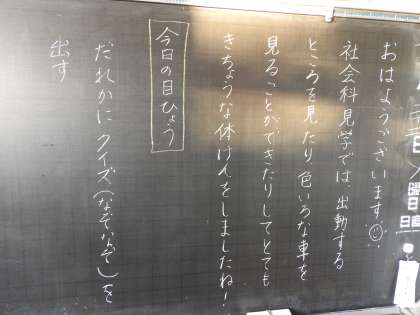 曜日
おはようございます
社会科見学では、出動する
ところを見たり、色いろな車を
見ることができたりしてとても
きちょうな体けんをしましたね!
今日の目ひょう
だれかにクイズ(なぞなぞ)を
出す